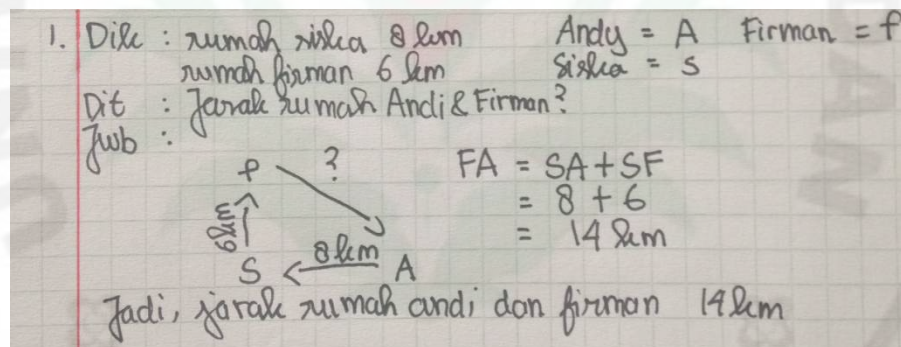 1. Dik : rumah siska 8 km Andy = A Firman = f
rumah firman 6 km Siska = S
Dit : Jarak rumah Andi & Firman?
Jwb :
F ? FA = SA + SF
6km = 8 + 6
8 km = 14 km
S A
Jadi, jarak rumah andi dan firman 14 km